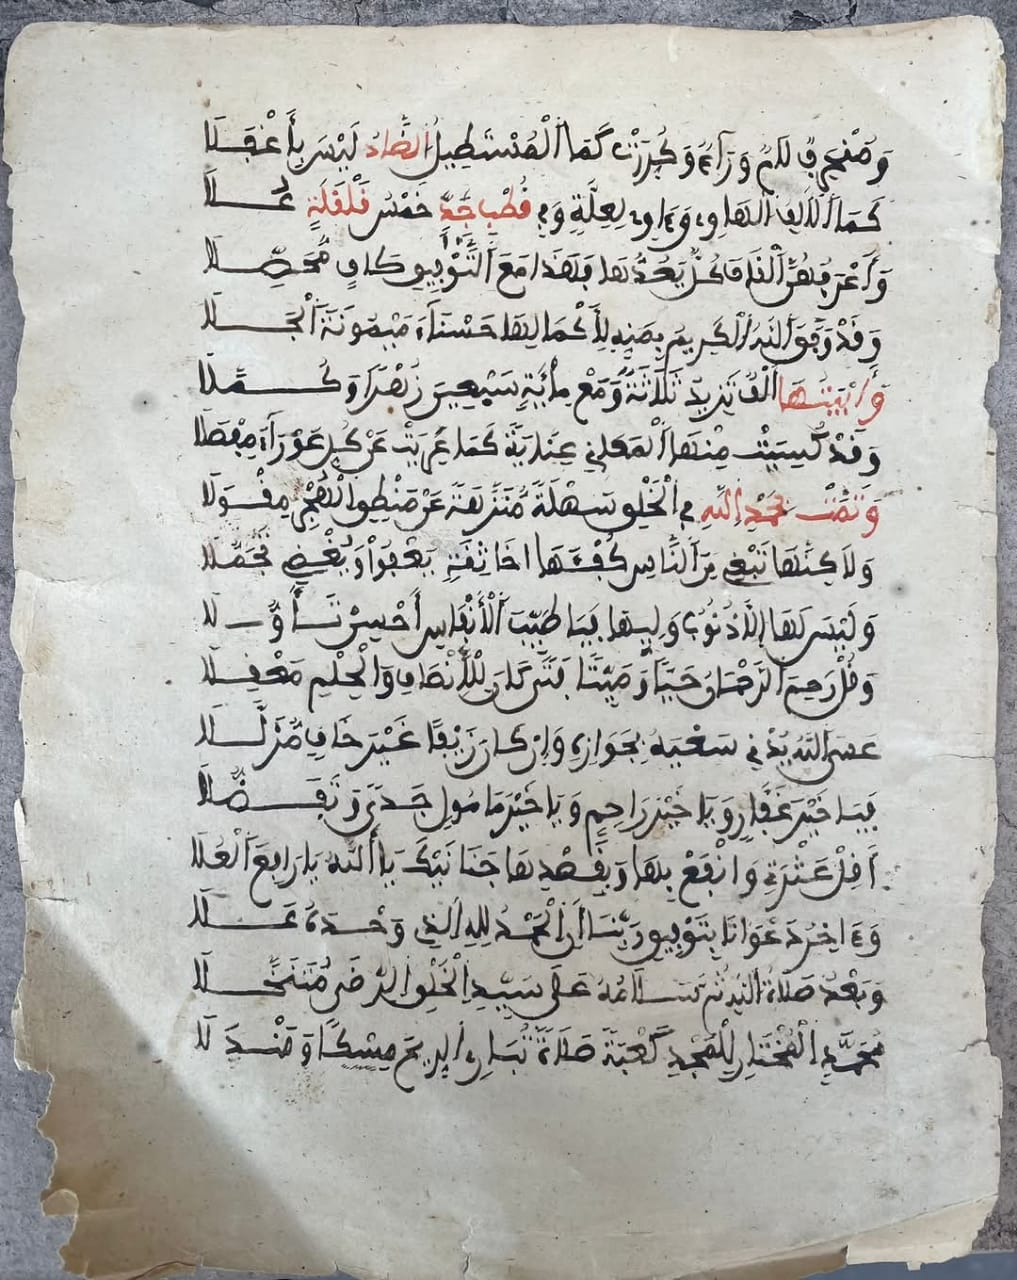 وَمُنْحَرِفٌ لَامٌ وَرَاءٌ وَكُرِّرَتْ كَمَا الْمُسْتَطِيلُ الضَّادُ لَيْسَ بِأَغْفَلَا
كَمَا الْأَلِفُ الْهَاوِي وَءَاوِي لِعِلَّةٍ وَفِي قُطْبِ جُدٍّ خَمْسُ قَلْقَلَةٍ عُلَا
وَأَعْرَفُهُنَّ الْقَافُ كُلٌّ يَعُدُّهَا فَهَذَا مَعَ التَّوْفِيقِ كَافٍ مُحَصِّلَا
وَقَدْ وَفَّقَ اللَّهُ الْكَرِيمُ بِمَنِّهِ لِإِكْمَالِهَا حَسْنَاءَ مَيْمُونَةَ الْجَلَا
وَأَبْيَتُهَا أَلْفٌ تَزِيدُ ثَلَاثَةً وَمَعْ مِائَةٍ سَبْعِينَ زُهْرًا وَكُمَّلَا
وَقَدْ كُسِيَتْ مِنْهَا الْمَعَانِي عِنَايَةً كَمَا عَرِيَتْ عَنْ كُلِّ عَوْرَاءَ مِفْصَلَا
وَتَمَّتْ بِحَمْدِ اللَّهِ فِي الْخَلْقِ سَهْلَةً مُنَزَّهَةً عَنْ مَنْطِقِ الْهُجْرِ مِقْوَلَا
وَلَاكِنَّهَا تَبْغِي مِنَ النَّاسِ كُفْؤَهَا أَخَا ثِقَةٍ يَعْفُوا وَيُغْضِي تَجَمُّلَا
وَلَيْسَ لَهَا إِلَّا ذُنُوبُ وَلِيِّهَا فَيَا طَيِّبَ الْأَنْفَاسِ أَحْسِنْ تَأَوُّلَا
وَقُلْ رَحِمَ الرَّحْمَانُ حَيًّا وَمَيِّتًا فَتًى كَانَ لِلْإِنْصَافِ وَالْحِلْمِ مَعْقِلَا
عَسَى اللَّهُ يُدْنِي سَعْيَهُ بِجَوَازِهِ وَإِنْ كَانَ زَيْفًا غَيْرَ خَافٍ مُزَلَّلَا
فَيَا خَيْرَ غَفَّارٍ وَيَا خَيْرَ رَاحِمٍ وَيَا خَيْرَ مَأْمُولٍ جَدًى وَتَفَضُّلَا
أَقِلْ عَثْرَتِي وَانْفَعْ بِهَا وَبِقَصْدِهَا حَنَانَيْكَ يَا أَللَّهُ يَا رَافِعَ الْعُلَا
وَءَاخِرُ دَعْوَانَا بِتَوْفِيقِ رَبِّنَا أَنِ الْحَمْدُ لِلَّهِ الَّذِي وَحْدَهُ عَلَا
وَبَعْدُ صَلَاةُ اللَّهِ ثُمَّ سَلَامُهُ عَلَى سَيِّدِ الْخَلْقِ الرِّضَى مُتَنَخَّلَا
مُحَمَّدٍ الْمُخْتَارِ لِلْمَجْدِ كَعْبَةً صَلَاةً تُبَارِي الرِّيحَ مِسْكًا وَمَنْدَلَا